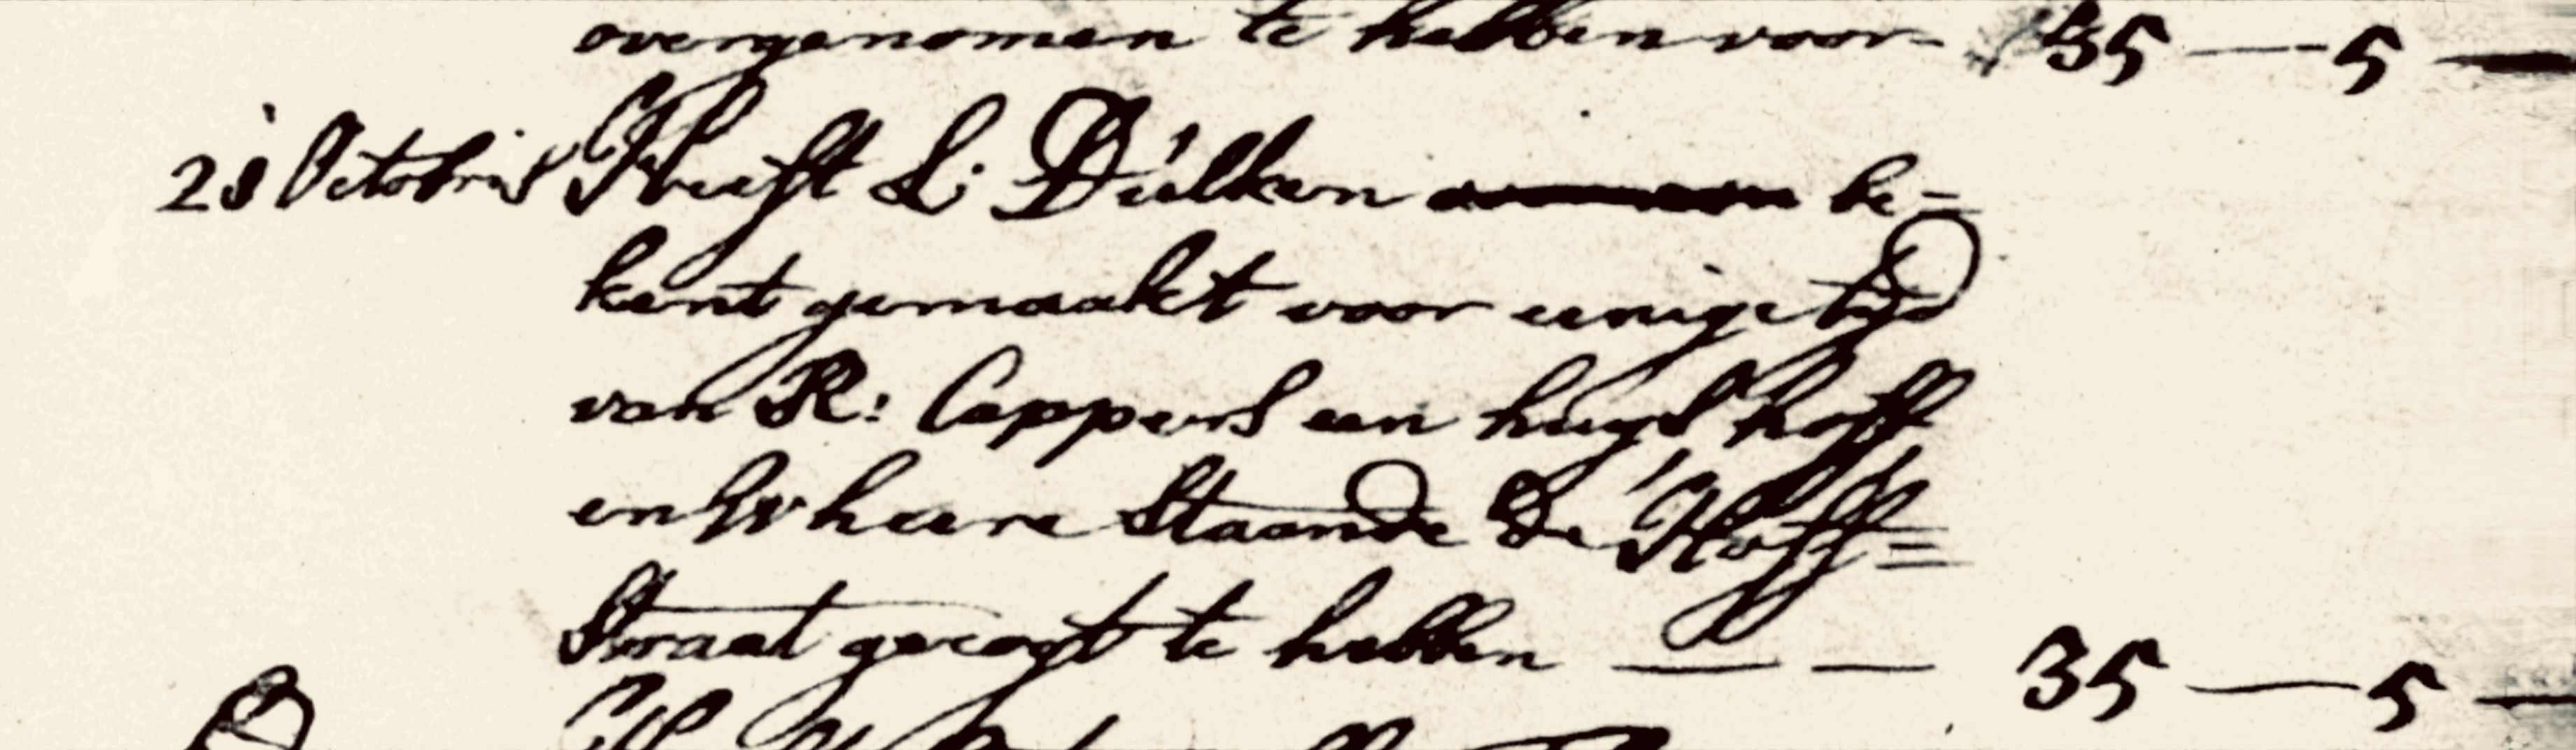 overgenomen te hebben voor 35 — 5 —
28 Octobris Heeft L: Dulken be-
kent gemaakt voor eenige tijd
van R: Coppens een huys hoff
en Scheere Staande de Hoff=
Straat gecogt te hebben — — 35 — 5 —